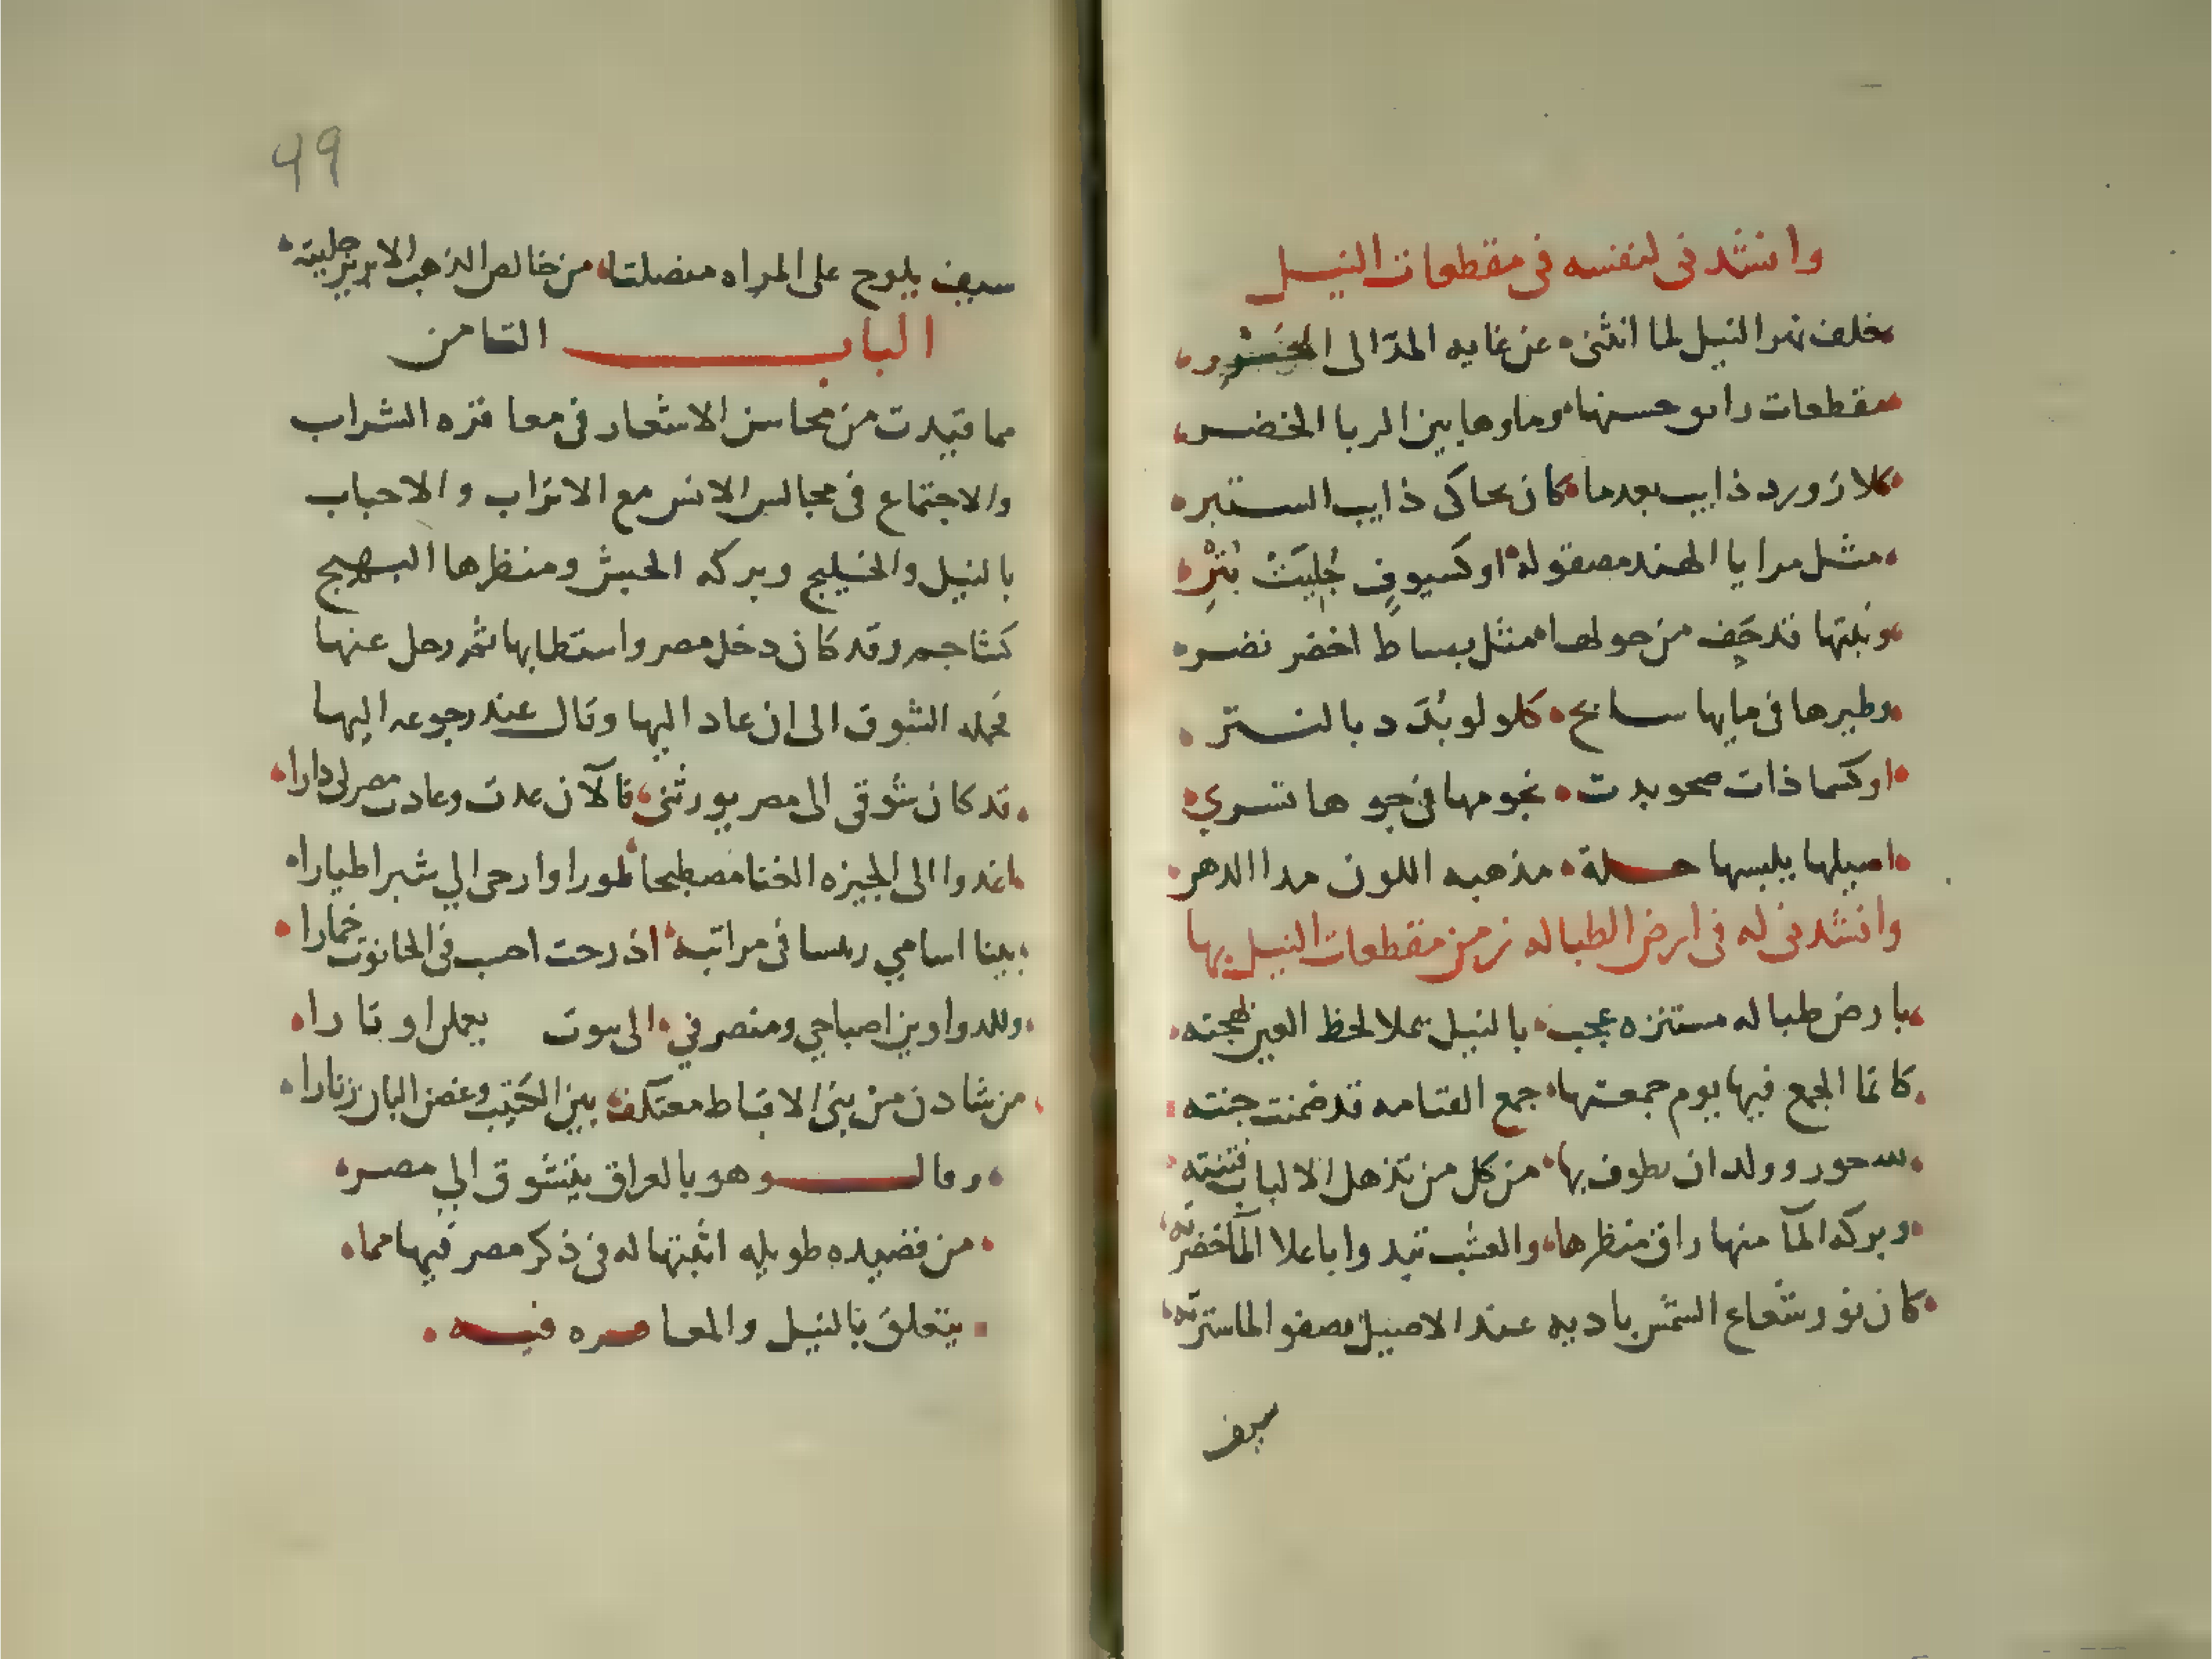 وانشدنى لنفسه فى مقطعات النيل
خلف نهر النيل لما انثنى عن غايه المدّ الى الجسور
مقطعات راىو حسنها وماوها بين الربا الخضر
كلازورد ذايب بعدما كان يحاكى ذايب الستبره
مثل مرايا الهند مصقولة اوكسيوفٍ جُلِيَتْ بُتْرِ
ونبتها قد حَف من حولها مثل بساط اخضر نضر
وطيرها فى مايها سابح كلولو بُدّد بالنستر
اوكسما ذات صحو بدت نجومها فى جوها تسري
اصيلها يلبسها حلة مذهبه اللون مدا الدهر
وانشدنى له فى ارض الطباله زمن مقطعات النيل بها
بارض طباله مستنزه عجب بالنيل يملا لحظ العين بهجته
كانما الجمع فيها يوم جمعتها جمع القتامه قد ضمنت جنته
حور وولدان يطوف بها من كل من تذهل الالباب فتنته
وبركه المآ منها راق منظرها والعشب تبدوا باعلا المآ خضرته
كان نور شعاع الشمس باديه عند الاصيل بصفو الما سترته
سيف
49
سيف يلوح على المراه منصلتا من خالص الذهب الابريز حليته
الباب الثامن
مما قيدت من محاسن الاشعار فى معاقره الشراب
والاجتماع فى مجالس الانس مع الاتراب والاحباب
بالنيل والخليج وبركه الحبش ومنظرها البهيج
كشاجم وقد كان دخل مصر واستطابها ثم رحل عنها
فحمله الشوق الى ان عاد اليها وقال عند رجوعه اليها
قد كان شوقى الى مصر يورثنى فالآن عدت وعادت مصر لى دارا
اغدوا الى الجيزه الغنا مصطبحا طورا وارحى الي شبرا طيارا
بينا اسامي ريسا فى مراتبه اذ رحت احب فى الحانوت خمارا
وللدواوين اصباحي ومنصرفي الى بيوت يعملن اوتارا
من شادن من بنى الاقباط معتكف بين الكثيب وغصن البان زنارا
وقال وهو بالعراق يتشوق الي مصر
من قصيده طويله اثبتها له فى ذكر مصر فيها مما
يتعلق بالنيل والمعاقره فيه